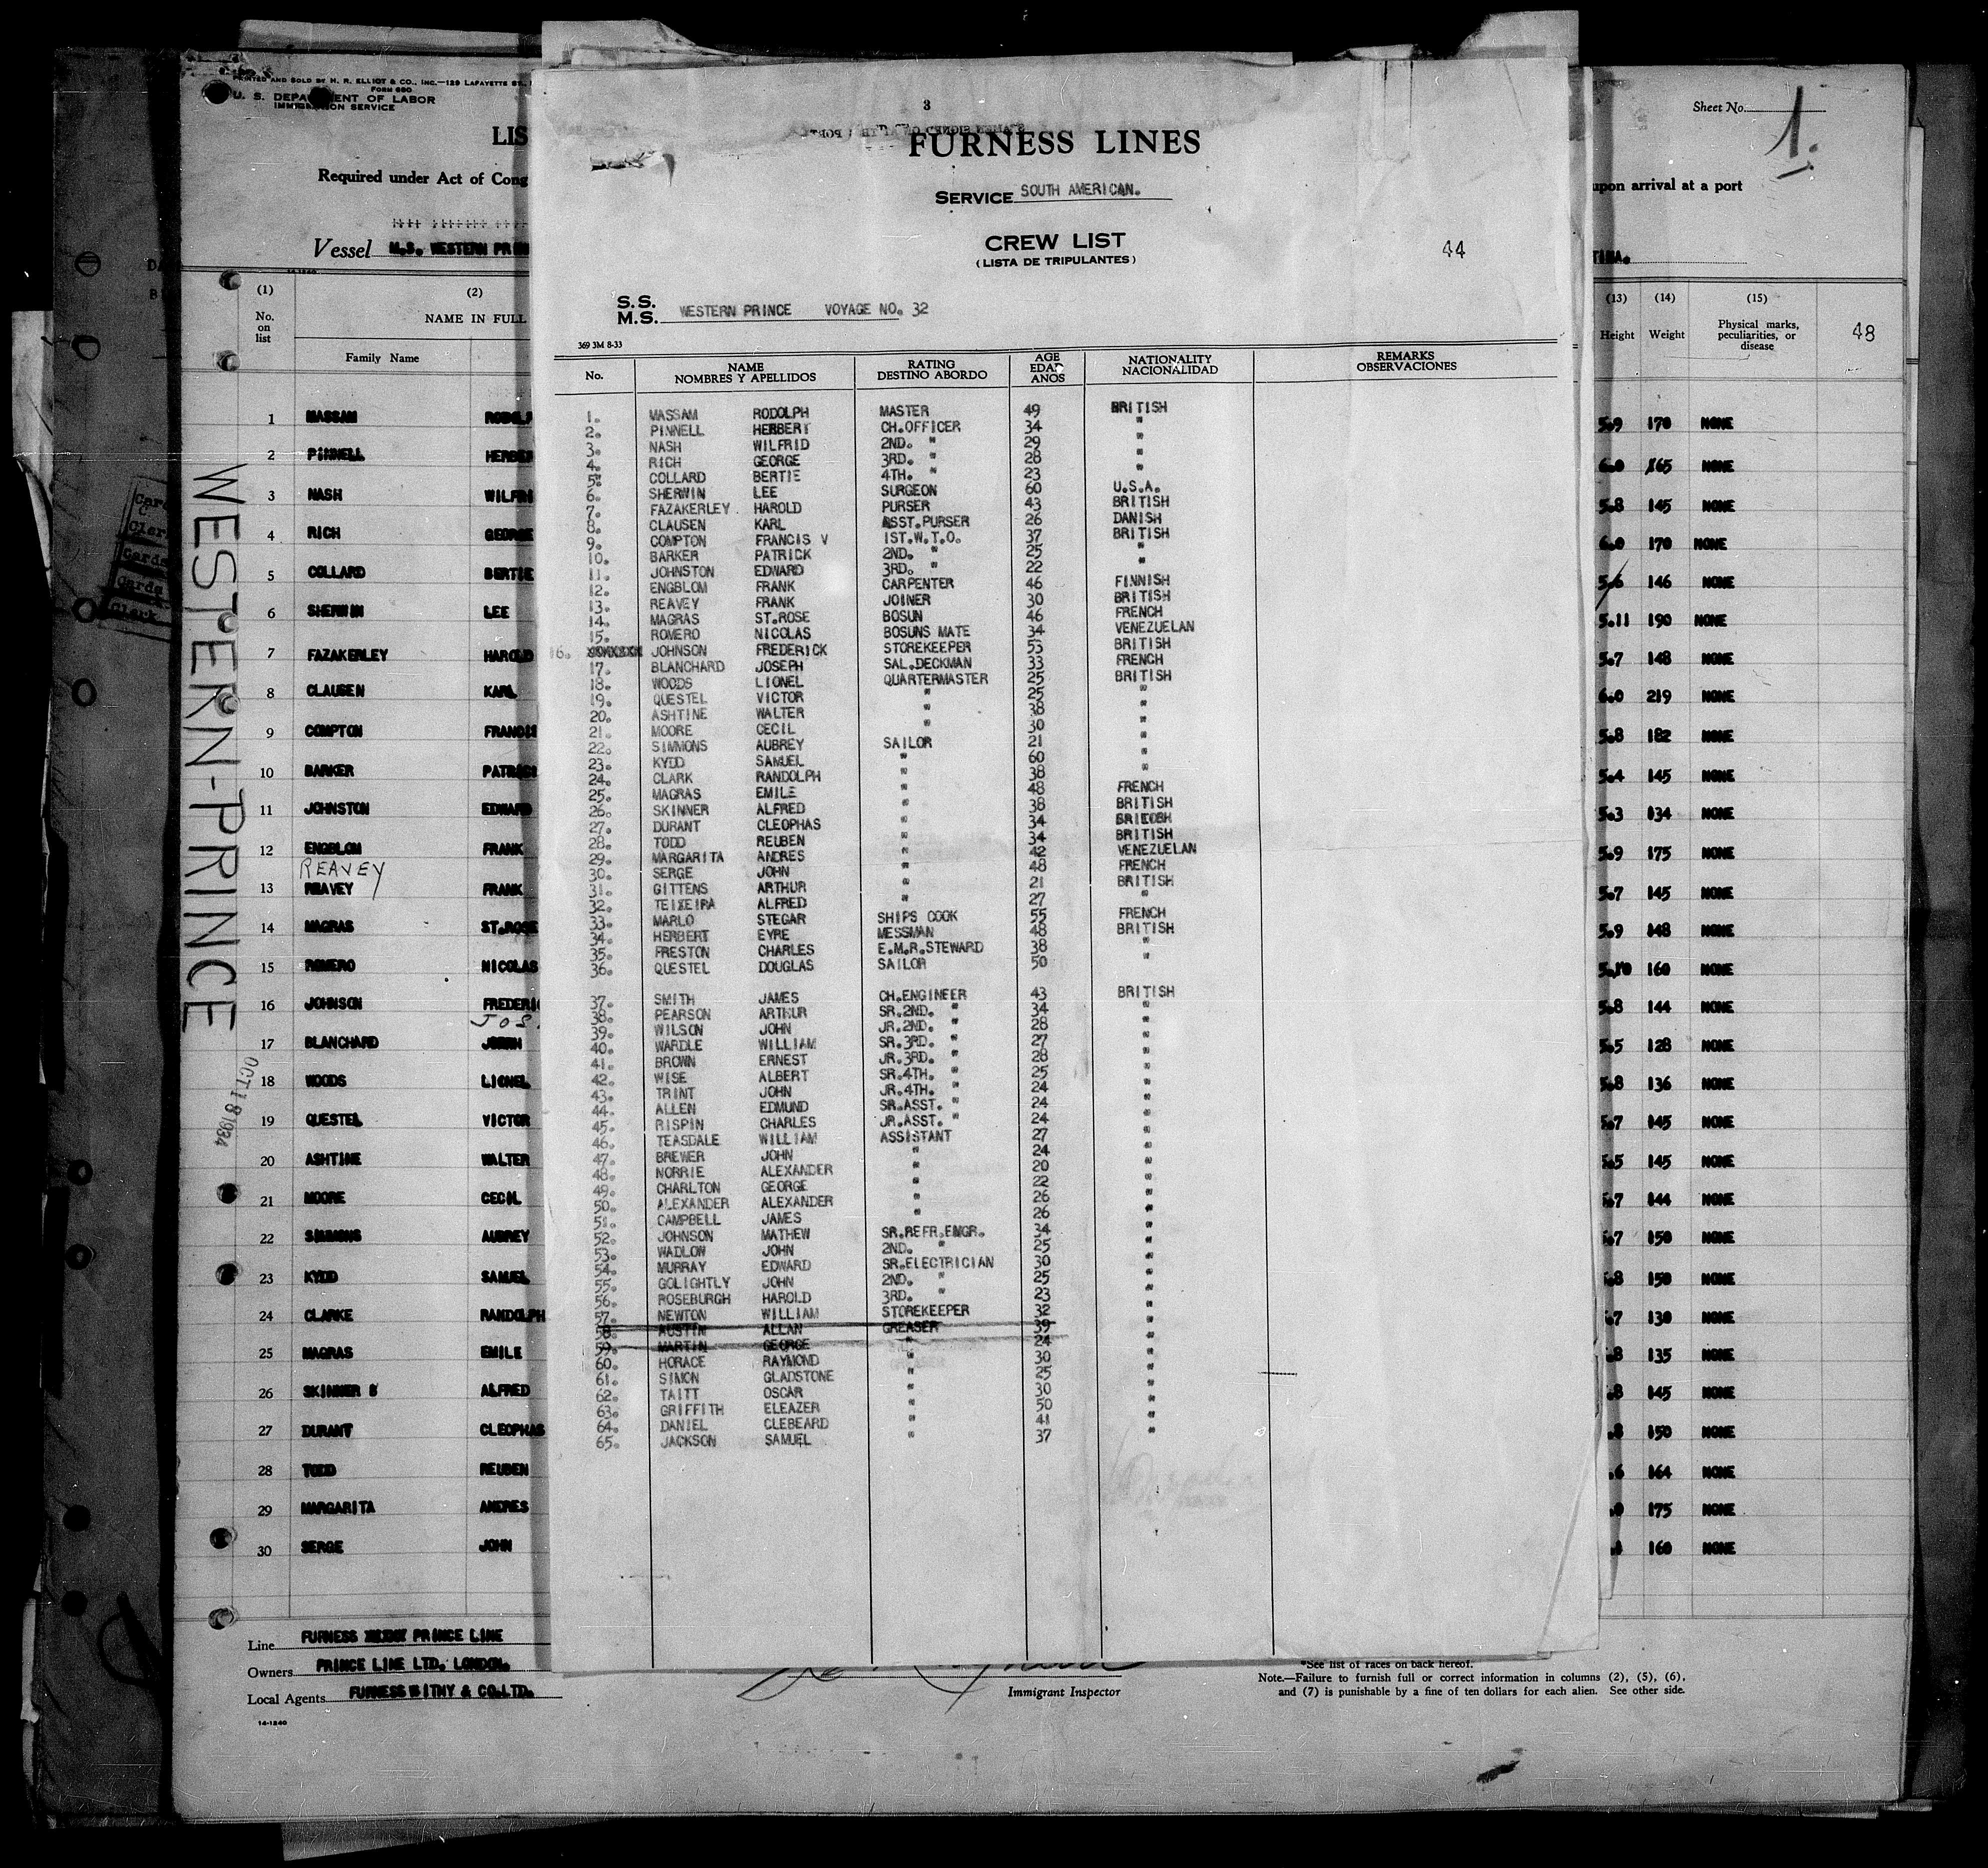 PRINTED AND SOLD BY H. R. ELLIOT & CO., INC.—129 LAFAYETTE ST.,
FORM 680
U. S. DEPARTMENT OF LABOR
IMMIGRATION SERVICE
LIS
Required under Act of Cong
Vessel M.S. WESTERN PRIN
(1) (2)
No. on list
NAME IN FULL
Family Name
1 MASSAM RODOLP
2 PINNELL HERBER
3 NASH WILFRI
4 RICH GEORGE
5 COLLARD BERTIE
6 SHERWIN LEE
7 FAZAKERLEY HAROLD
8 CLAUSEN KARL
9 COMPTON FRANCIS
10 BARKER PATRIC
11 JOHNSTON EDWARD
12 ENGBLOM FRANK
REAVEY
13 REAVEY FRANK
14 MAGRAS ST.ROSE
15 ROMERO NICOLAS
16 JOHNSON FREDERIC
JOS.
17 BLANCHARD
18 WOODS LIONEL
19 QUESTEL VICTOR
20 ASHTINE WALTER
21 MOORE CECIL
22 SIMMONS AUBREY
23 KYDD SAMUEL
24 CLARKE RANDOLPH
25 MAGRAS EMILE
26 SKINNER ALFRED
27 DURANT CLEOPHAS
28 TODD REUBEN
29 MARGARITA ANDRES
30 SERGE JOHN
Line FURNESS PRINCE LINE
Owners PRINCE LINE LTD. LONDON.
Local Agents FURNESS WITHY & CO.LTD.
14-1240
WESTERN-PRINCE
OCT 18 1934
Cards
Clerk
3
FURNESS LINES
SERVICE SOUTH AMERICAN.
CREW LIST
(LISTA DE TRIPULANTES)
44
S.S.
M.S. WESTERN PRINCE VOYAGE NO. 32
369 3M 8-33
No. NAME NOMBRES Y APELLIDOS RATING DESTINO ABORDO AGE EDAD AÑOS NATIONALITY NACIONALIDAD REMARKS OBSERVACIONES
1. MASSAM RODOLPH MASTER 49 BRITISH
2. PINNELL HERBERT CH.OFFICER 34 "
3. NASH WILFRID 2ND. " 29 "
4. RICH GEORGE 3RD. " 28 "
5. COLLARD BERTIE 4TH. " 23 "
6. SHERWIN LEE SURGEON 60 U.S.A.
7. FAZAKERLEY. HAROLD PURSER 43 BRITISH
8. CLAUSEN KARL ASST.PURSER 26 DANISH
9. COMPTON FRANCIS V 1ST.W.T.O. 37 BRITISH
10. BARKER PATRICK 2ND. " 25 "
11. JOHNSTON EDWARD 3RD. " 22 "
12. ENGBLOM FRANK CARPENTER 46 FINNISH
13. REAVEY FRANK JOINER 30 BRITISH
14. MAGRAS ST.ROSE BOSUN 46 FRENCH
15. ROMERO NICOLAS BOSUNS MATE 34 VENEZUELAN
16. JOHNSON FREDERICK STOREKEEPER 53 BRITISH
17. BLANCHARD JOSEPH SAL.DECKMAN 33 FRENCH
18. WOODS LIONEL QUARTERMASTER 25 BRITISH
19. QUESTEL VICTOR " 25 "
20. ASHTINE WALTER " 38 "
21. MOORE CECIL " 30 "
22. SIMMONS AUBREY SAILOR 21 "
23. KYDD SAMUEL " 60 "
24. CLARK RANDOLPH " 38 "
25. MAGRAS EMILE " 48 FRENCH
26. SKINNER ALFRED " 38 BRITISH
27. DURANT CLEOPHAS " 34
28. TODD REUBEN " 34 BRITISH
29. MARGARITA ANDRES " 42 VENEZUELAN
30. SERGE JOHN " 48 FRENCH
31. GITTENS ARTHUR " 21 BRITISH
32. TEIXEIRA ALFRED " 27 "
33. MARLO STEGAR SHIPS COOK 55 FRENCH
34. HERBERT EYRE MESSMAN 48 BRITISH
35. FRESTON CHARLES E.M.R.STEWARD 38 "
36. QUESTEL DOUGLAS SAILOR 50 "
37. SMITH JAMES CH.ENGINEER 43 BRITISH
38. PEARSON ARTHUR SR.2ND. " 34 "
39. WILSON JOHN JR.2ND. " 28 "
40. WARDLE WILLIAM SR.3RD. " 27 "
41. BROWN ERNEST JR.3RD. " 28 "
42. WISE ALBERT SR.4TH. " 25 "
43. TRINT JOHN JR.4TH. " 24 "
44. ALLEN EDMUND SR.ASST. " 24 "
45. RISPIN CHARLES JR.ASST. " 24 "
46. TEASDALE WILLIAM ASSISTANT 27 "
47. BREWER JOHN " 24 "
48. NORRIE ALEXANDER " 20 "
49. CHARLTON GEORGE " 22 "
50. ALEXANDER ALEXANDER " 26 "
51. CAMPBELL JAMES " 26 "
52. JOHNSON MATHEW SR.REFR.ENGR. 34 "
53. WADLOW JOHN 2ND. " 25 "
54. MURRAY EDWARD SR.ELECTRICIAN 30 "
55. GOLIGHTLY JOHN 2ND. " 25 "
56. ROSEBURGH HAROLD 3RD. " 23 "
57. NEWTON WILLIAM STOREKEEPER 32 "
58. AUSTIN ALLAN GREASER 39 "
59. MARTIN GEORGE " 24 "
60. HORACE RAYMOND " 30 "
61. SIMON GLADSTONE " 25 "
62. TAITT OSCAR " 30 "
63. GRIFFITH ELEAZER " 50 "
64. DANIEL CLEBEARD " 41 "
65. JACKSON SAMUEL " 37 "
Immigrant Inspector
*See list of races on back hereof.
Note.—Failure to furnish full or correct information in columns (2), (5), (6),
and (7) is punishable by a fine of ten dollars for each alien. See other side.
Sheet No. 1.
upon arrival at a port
TINA.
(13) (14) (15)
Height Weight Physical marks, peculiarities, or disease
48
5.9 170 NONE
6.0 165 NONE
5.8 145 NONE
6.0 170 NONE
5.6 146 NONE
5.11 190 NONE
5.7 148 NONE
6.0 219 NONE
5.8 182 NONE
5.4 145 NONE
5.3 134 NONE
5.9 175 NONE
5.7 145 NONE
5.9 148 NONE
5.10 160 NONE
5.8 144 NONE
5.5 128 NONE
5.8 136 NONE
5.7 145 NONE
5.5 145 NONE
.7 144 NONE
.7 150 NONE
.8 150 NONE
.7 130 NONE
.8 135 NONE
.8 145 NONE
.8 150 NONE
.6 164 NONE
175 NONE
160 NONE